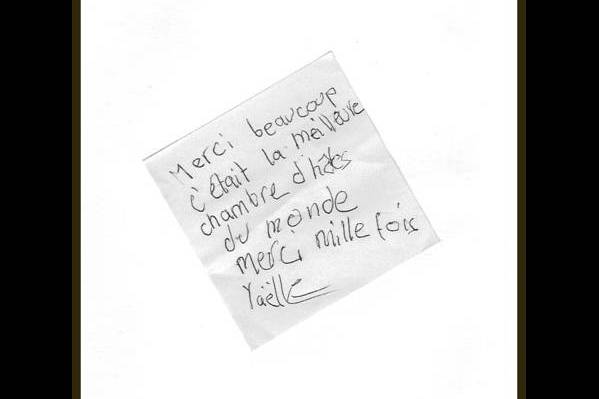 Merci beaucoup
c'était la meilleure
chambre d'hôtes
du monde
merci mille fois
Yaëlle